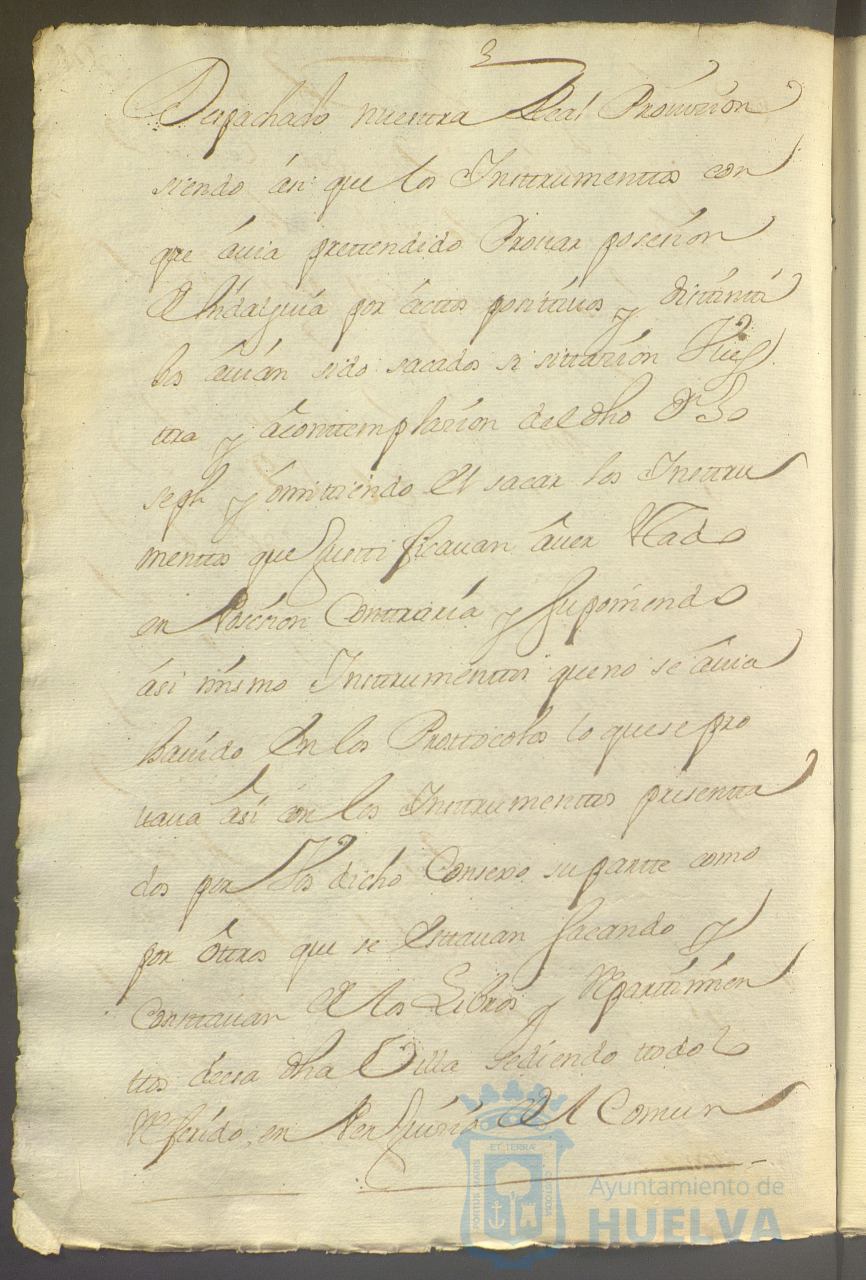 Despachado nuestra Real Provission
siendo ási que los Instrumenttos con
que ávia prettendido Provar posesion
de hidalguia por ácttos positivos y
los ávian sido sacados sin sittazion
ttra y áconttemplazion del dho Dn Jo
seph y omittiendo el sacar los Instru
menttos que Justtificavan áver esttado
en Posesion Conttraria y suponiendo
ási mismo Instrumenttos que no se ávia
havido en los Prottocolos lo que se pro
vava ási con los Instrumenttos presentta
dos por Vos dicho Consexo su partte como
por ôttros que se esttavan sacando y
Consttavan de los Libros y Reparttimien
ttos de esa dha Villa zediendo ttodo lo
Referido en Perjuizio del Comun
ET TERRAE
PORTUS MARIS
CUSTODIA
Ayuntamiento de
HUELVA